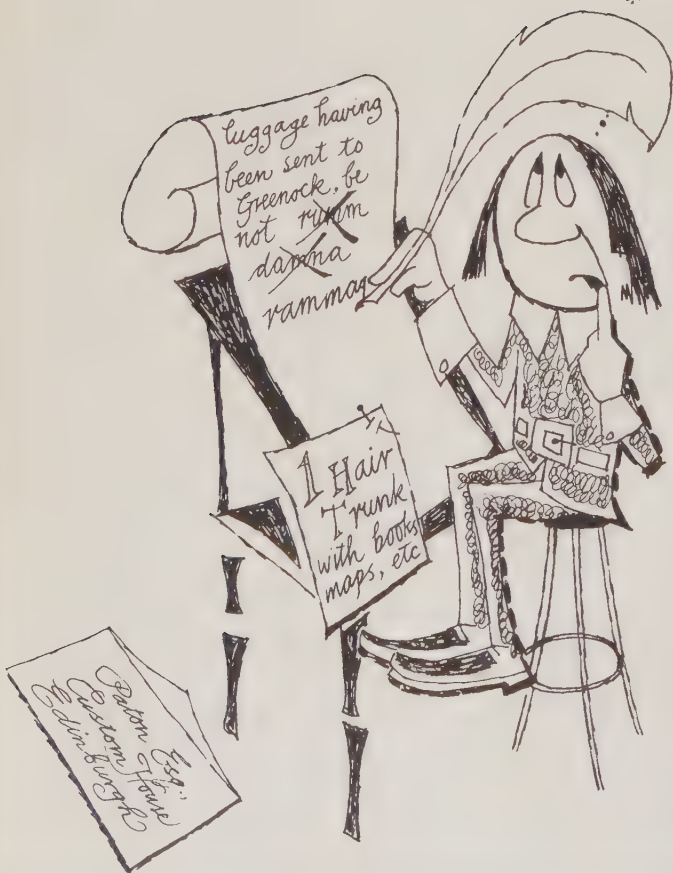 luggage having
been sent to
Greenock, be
not rumm
damna
rammag
1 Hair
Trunk
with books
maps, etc
Paton Esq.,
Custom House
Edinburgh